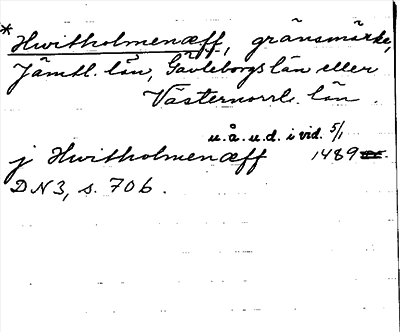 * Hwitholmenæff, gränsmärke,
Jämtl. län, Gävleborgs län eller
Västernorrl. län.
u.å.u.d. i vid. 5/1
j Hwitholmenæff 1489
DN3, s. 706.